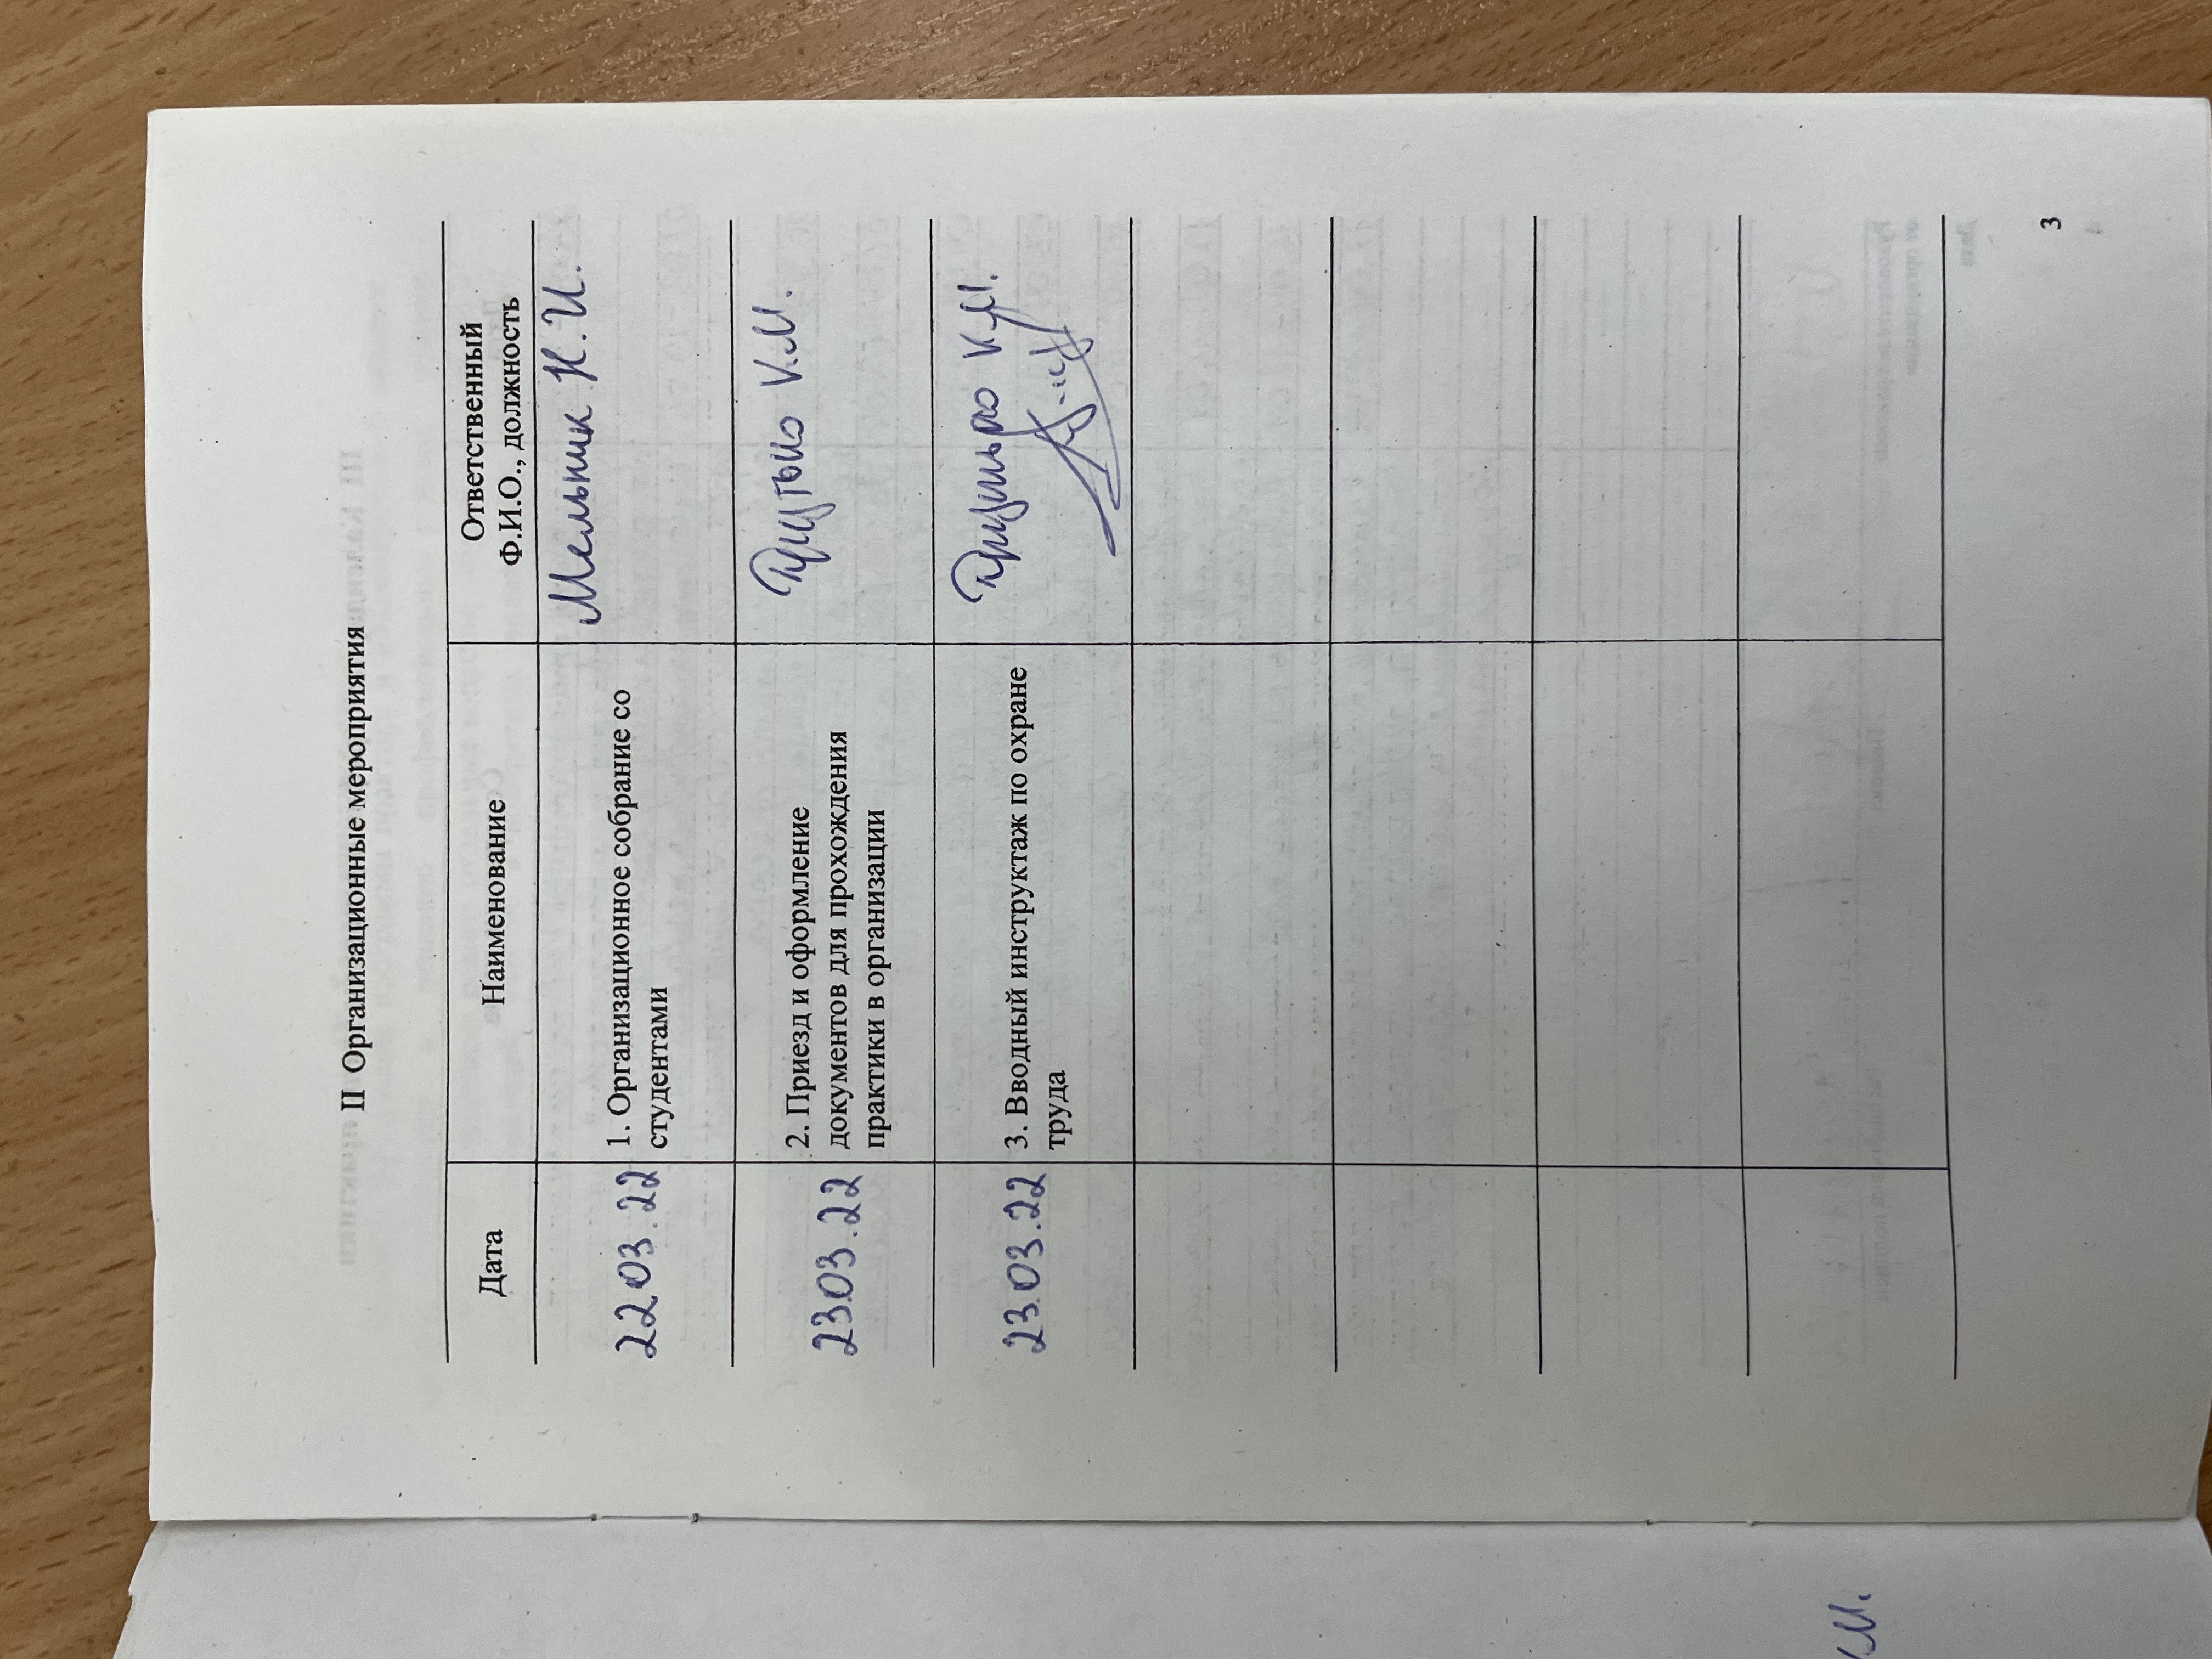 II Организационные мероприятия
Дата
Наименование
Ответственный
Ф.И.О., должность
22.03.22
1. Организационное собрание со
студентами
Мельник Н.И.
23.03.22
2. Приезд и оформление
документов для прохождения
практики в организации
К.М.
23.03.22
3. Вводный инструктаж по охране
труда
К.М.
3